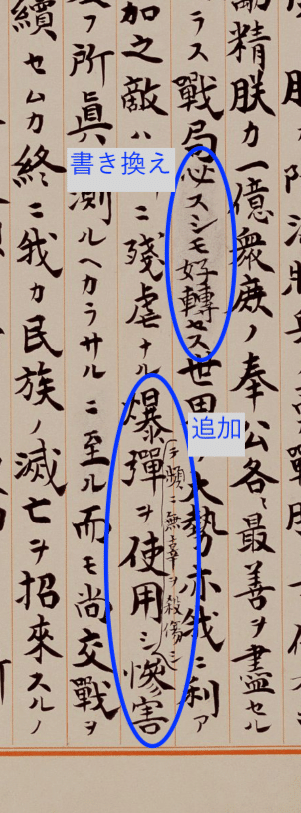 勵精朕カ一億衆庶ノ奉公各〻最善ヲ盡セル
ラス戰局必スシモ好轉セス世界ノ大勢亦我ニ利ア
加之敵ハニ殘虐ナル爆彈ヲ使用シ慘害
テ頻ニ無辜ヲ殺傷シ
フ所眞測ルヘカラサルニ至ル而モ尚交戰ヲ
續セムカ終ニ我カ民族ノ滅亡ヲ招來スルノ
書き換え
追加